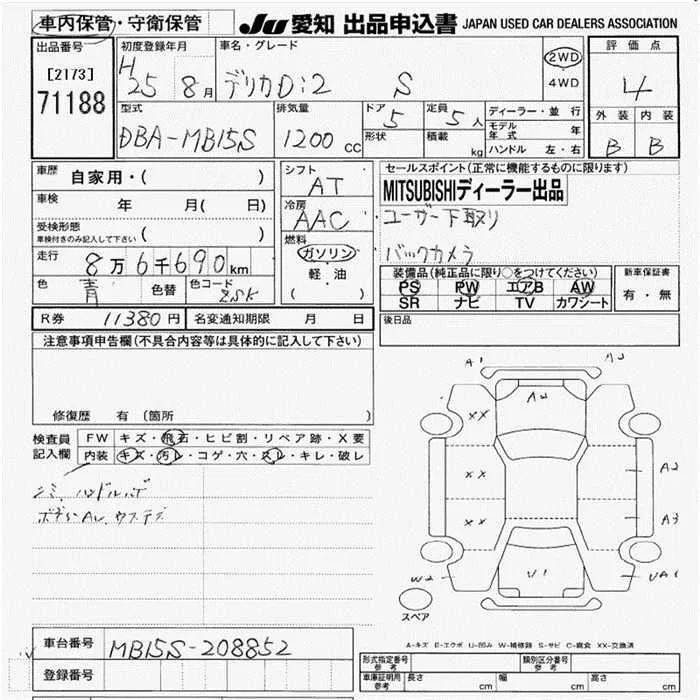 車内保管・守衛保管
JU 愛知 出品申込書 JAPAN USED CAR DEALERS ASSOCIATION
出品番号
[2173]
71188
初度登録年月
H 25 8月
車名・グレード
デリカD:2 S
2WD
4WD
評価点
4
外装 内装
B B
型式
DBA-MB15S
排気量
1200 CC
ドア
5
形状
定員
5人
積載 kg
ディーラー・並行
モデル年式 年
ハンドル 左・右
車歴
自家用・( )
車検 年 月( 日)
受検形態
車検付きのみ記入して下さい ( )
走行
8万6千690km
色 青 色替 色コード ZSK
シフト
AT
冷房
AAC
燃料
ガソリン
軽油
( )
セールスポイント(正常に機能するものに限ります)
MITSUBISHIディーラー出品
ユーザー下取り
バックカメラ
装備品(純正品に限り○をつけてください)
PS PW エアB AW
SR ナビ TV カワシート
新車保証書
有・無
R券 11380円 名変通知期限 月 日
後日品
注意事項申告欄(不具合内容等は具体的に記入して下さい)
修復歴 有(箇所 )
検査員記入欄
FW キズ・飛石・ヒビ割・リペア跡・X要
内装 キズ・汚レ・コゲ・穴・スレ・キレ・破レ
シミ ハンドルハゲ
A1
A2
XX
XX
XX
A2
A3
W2
U1
UA1
スペア
A-キズ E-エクボ U-凹み W-補修跡 S-サビ C-腐食 XX-交換済
車台番号 MB15S-208852
登録番号
形式指定番号
参考
類別区分番号
参考
車庫証明用
参考
長さ cm 幅 cm 高さ cm